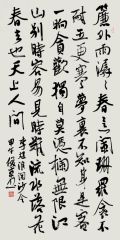 簾外雨潺潺春意闌珊羅衾不
耐五更寒夢裏不知身是客
一晌貪歡獨自莫憑欄無限江
山別時容易見時難流水落花
春去也天上人間
李煜浪淘沙令
甲午